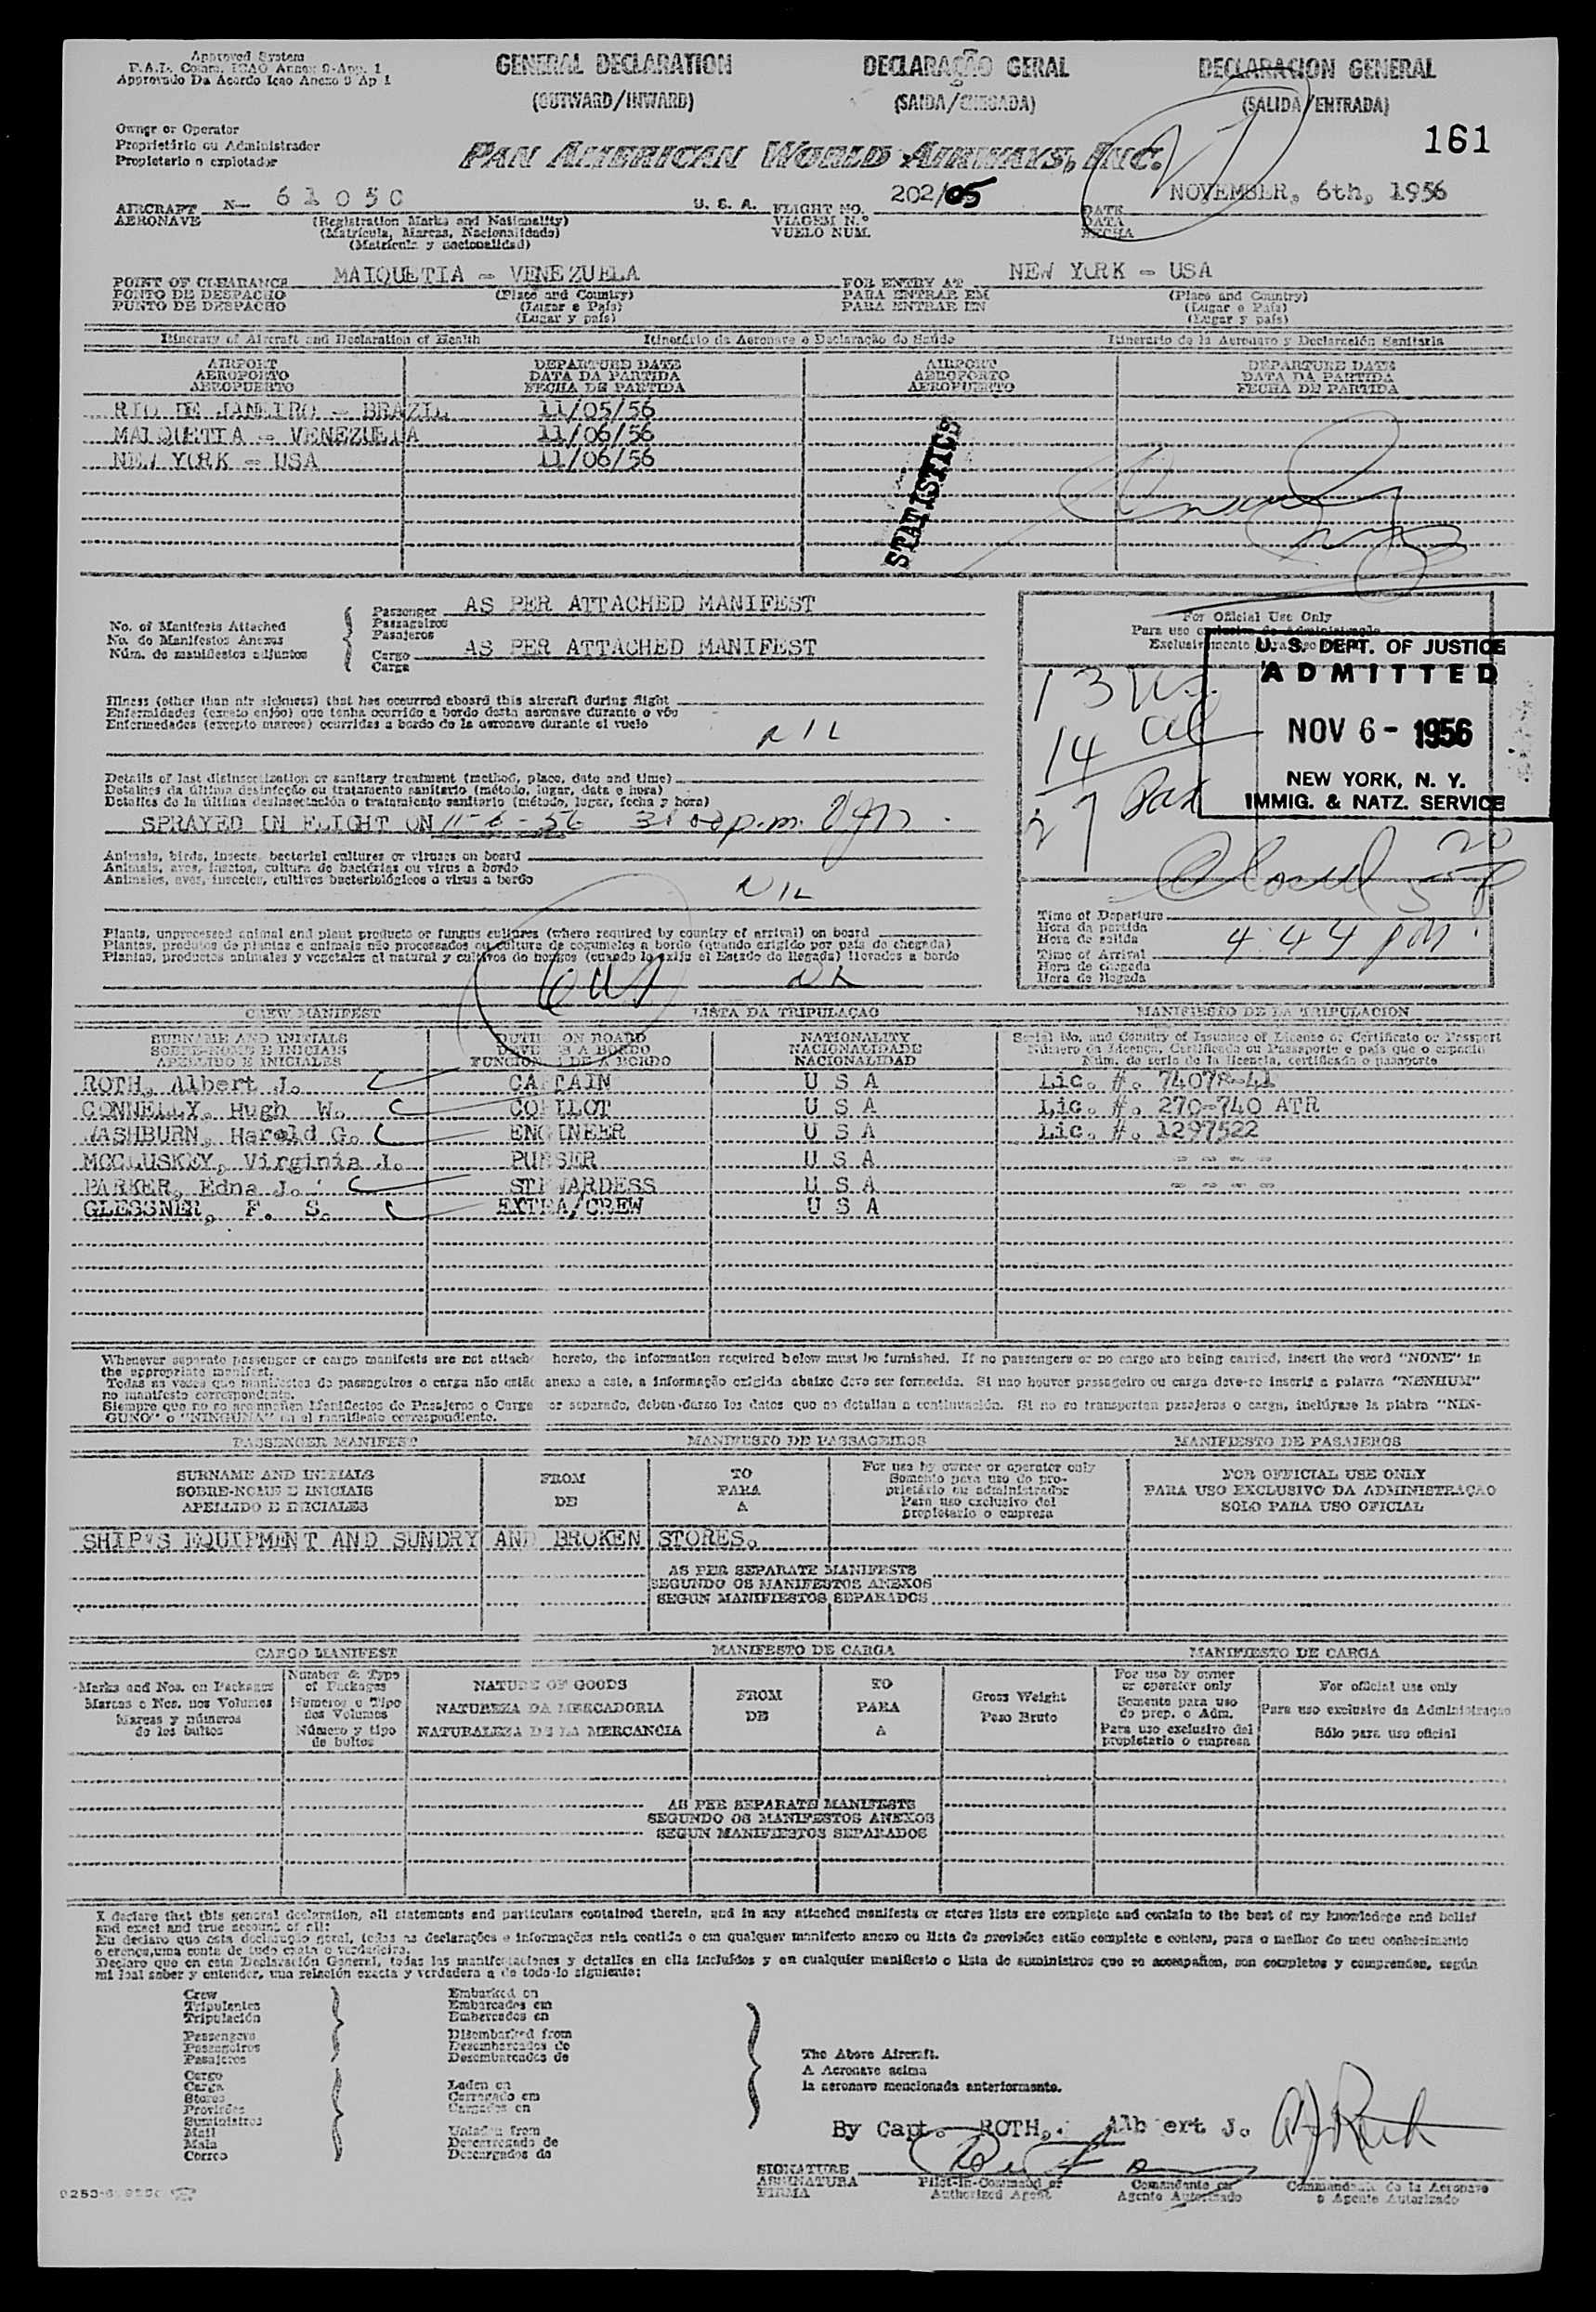 Approved System
F.A.L. Comm. ICAO Annex 9-App. 1
Approvado Da Acordo Icao Anexo 9 Ap 1
GENERAL DECLARATION
(OUTWARD/INWARD)
DECLARAÇÃO GERAL
(SAIDA/CHEGADA)
DECLARACION GENERAL
(SALIDA/ENTRADA)
161
Owner or Operator
Proprietário ou Administrador
Propietario o explotador
PAN AMERICAN WORLD AIRWAYS, INC.
AIRCRAFT N- 61050 U. S. A. FLIGHT NO. 202/05 DATE NOVEMBER, 6th, 1956
AERONAVE (Registration Marks and Nationality) VIAGEM N.º DATA
(Matrícula, Marcas, Nacionalidade) VUELO NUM. FECHA
(Matrícula y nacionalidad)
POINT OF CLEARANCE MAIQUETIA - VENEZUELA FOR ENTRY AT NEW YORK - USA
PONTO DE DESPACHO (Place and Country) PARA ENTRAR EM (Place and Country)
PUNTO DE DESPACHO (Lugar e País) PARA ENTRAR EN (Lugar e País)
(Lugar y país) (Lugar y país)
Itinerary of Aircraft and Declaration of Health Itinerário da Aeronave e Declaração de Saúde Itinerario de la Aeronave y Declaración Sanitaria
AIRPORT DEPARTURE DATE AIRPORT DEPARTURE DATE
AEROPORTO DATA DA PARTIDA AEROPORTO DATA DA PARTIDA
AEROPUERTO FECHA DE PARTIDA AEROPUERTO FECHA DE PARTIDA
RIO DE JANEIRO - BRAZIL 11/05/56
MAIQUETIA - VENEZUELA 11/06/56
NEW YORK - USA 11/06/56
STATISTICS
No. of Manifests Attached
No. de Manifestos Anexos
Núm. de manifiestos adjuntos
Passenger AS PER ATTACHED MANIFEST
Passageiros
Pasajeros
Cargo AS PER ATTACHED MANIFEST
Carga
For Official Use Only
U. S. DEPT. OF JUSTICE
ADMITTED
NOV 6 - 1956
NEW YORK, N. Y.
IMMIG. & NATZ. SERVICE
13 U.S.
14 al
27 Pax
Illness (other than air sickness) that has occurred aboard this aircraft during flight
Enfermidades (exceto enjôo) que tenha ocorrido a bordo desta aeronave durante o vôo
Enfermedades (excepto mareos) ocurridas a bordo de la aeronave durante el vuelo
NIL
Details of last disinsectization or sanitary treatment (method, place, date and time)
Detalhes da última desinfeção ou tratamento sanitario (método, lugar, data e hora)
Detalles de la última desinsectación o tratamiento sanitario (método, lugar, fecha y hora)
SPRAYED IN FLIGHT ON 11-6-56 3:00 p.m.
Animals, birds, insects, bacterial cultures or viruses on board
Animais, aves, insetos, cultura de bactérias ou virus a bordo
Animales, aves, insectos, cultivos bacteriológicos o virus a bordo
NIL
Plants, unprocessed animal and plant products or fungus cultures (where required by country of arrival) on board
Plantas, produtos de plantas e animais não processados ou culture de cogumelos a bordo (quando exigido por país de chegada)
Plantas, productos animales y vegetales al natural y cultivos de hongos (cuando lo exija el Estado de llegada) llevados a bordo
Time of Departure
Hora da partida
Hora de salida
4:44 pm
Time of Arrival
Hora de chegada
Hora de llegada
CREW MANIFEST LISTA DA TRIPULAÇAO MANIFIESTO DE LA TRIPULACION
SURNAME AND INITIALS DUTIES ON BOARD NATIONALITY Serial No. and Country of Issuance of License or Certificate or Passport
SOBRE-NOME E INICIAIS DEVERES A BORDO NACIONALIDADE Número da licença, Certificado ou Passaporte e país que o expediu
APELLIDO E INICIALES FUNCIONES DE A BORDO NACIONALIDAD Núm. de serie de la licencia, certificado o pasaporte
ROTH, Albert J. CAPTAIN U S A Lic. #. 74078-41
CONNELLY, Hugh W. COPILOT U S A Lic. #. 270-740 ATR
WASHBURN, Harold G. ENGINEER U S A Lic. #. 1297522
MCCLUSKEY, Virginia J. PURSER U S A - - - -
PARKER, Edna J. STEWARDESS U S A - - - -
GLESSNER, F. S. EXTRA/CREW U S A
Whenever separate passenger or cargo manifests are not attached hereto, the information required below must be furnished. If no passengers or no cargo are being carried, insert the word "NONE" in
the appropriate manifest.
Todas as vezes que manifestos de passageiros o carga não estão anexo a este, a informação exigida abaixo deve ser fornecida. Si nao houver passageiro ou carga deve-se inserir a palavra "NENHUM"
no manifesto correspondente.
Siempre que no se acompañen Manifiestos de Pasajeros o Carga por separado, deben darse los datos que se detallan a continuación. Si no se transportan pasajeros o carga, inclúyase la plabra "NIN-
GUNO" o "NINGUNA" en el manifiesto correspondiente.
PASSENGER MANIFEST MANIFESTO DE PASSAGEIROS MANIFIESTO DE PASAJEROS
SURNAME AND INITIALS FROM TO For use by owner or operator only FOR OFFICIAL USE ONLY
SOBRE-NOME E INICIAIS DE PARA Somente para uso do pro- PARA USO EXCLUSIVO DA ADMINISTRAÇAO
APELLIDO E INICIALES A prietário ou administrador SOLO PARA USO OFICIAL
Para uso exclusivo del
propietario o empresa
SHIP'S EQUIPMENT AND SUNDRY AND BROKEN STORES.
AS PER SEPARATE MANIFESTS
SEGUNDO OS MANIFESTOS ANEXOS
SEGUN MANIFIESTOS SEPARADOS
CARGO MANIFEST MANIFESTO DE CARGA MANIFIESTO DE CARGA
Marks and Nos. on Packages Number & Type of Packages NATURE OF GOODS FROM TO Gross Weight For use by owner or operator only For official use only
Marcas e Nos. nos Volumes Numeros e Tipo dos Volumes NATUREZA DA MERCADORIA DE PARA Peso Bruto Somente para uso do prop. o Adm. Para uso exclusivo da Administraçao
Marcas y números de los bultos Número y tipo de bultos NATURALEZA DE LA MERCANCIA A Para uso exclusivo del propietario o empresa Sólo para uso oficial
AS PER SEPARATE MANIFESTS
SEGUNDO OS MANIFESTOS ANEXOS
SEGUN MANIFIESTOS SEPARADOS
I declare that this general declaration, all statements and particulars contained therein, and in any attached manifests or stores lists are complete and contain to the best of my knowledege and belief
and exact and true account of all:
Eu declaro que esta declaração geral, todas as declarações e informações nela contida e em qualquer manifesto anexo ou lista de provisões estão completo e contem, para o melhor do meu conhecimento
e crença, uma conta de tudo exata e verdadeira.
Declaro que en esta Declaración General, todas las manifestaciones y detalles en ella incluidos y en cualquier manifiesto o lista de suministros que se acompañen, son completos y comprenden, según
mi leal saber y entender, una relación exacta y verdadera de todo lo siguiente:
Crew
Tripulantes
Tripulación
Passengers
Passageiros
Pasajeros
Cargo
Carga
Stores
Provisões
Suministros
Mail
Mala
Correo
Embarked on
Embarcados em
Embarcados en
Disembarked from
Desembarcados de
Desembarcados de
Laden on
Carregado em
Cargados en
Unladen from
Descarregado de
Descargados de
The Above Aircraft.
A Aeronave acima
la aeronave mencionada anteriormente.
By Capt. ROTH, Albert J. AJ Roth
SIGNATURE
ASSINATURA
FIRMA
Pilot-in-Command or Authorized Agent
Comandante ou Agente Autorizado
Commandante de la Aeronave o Agente Autorizado